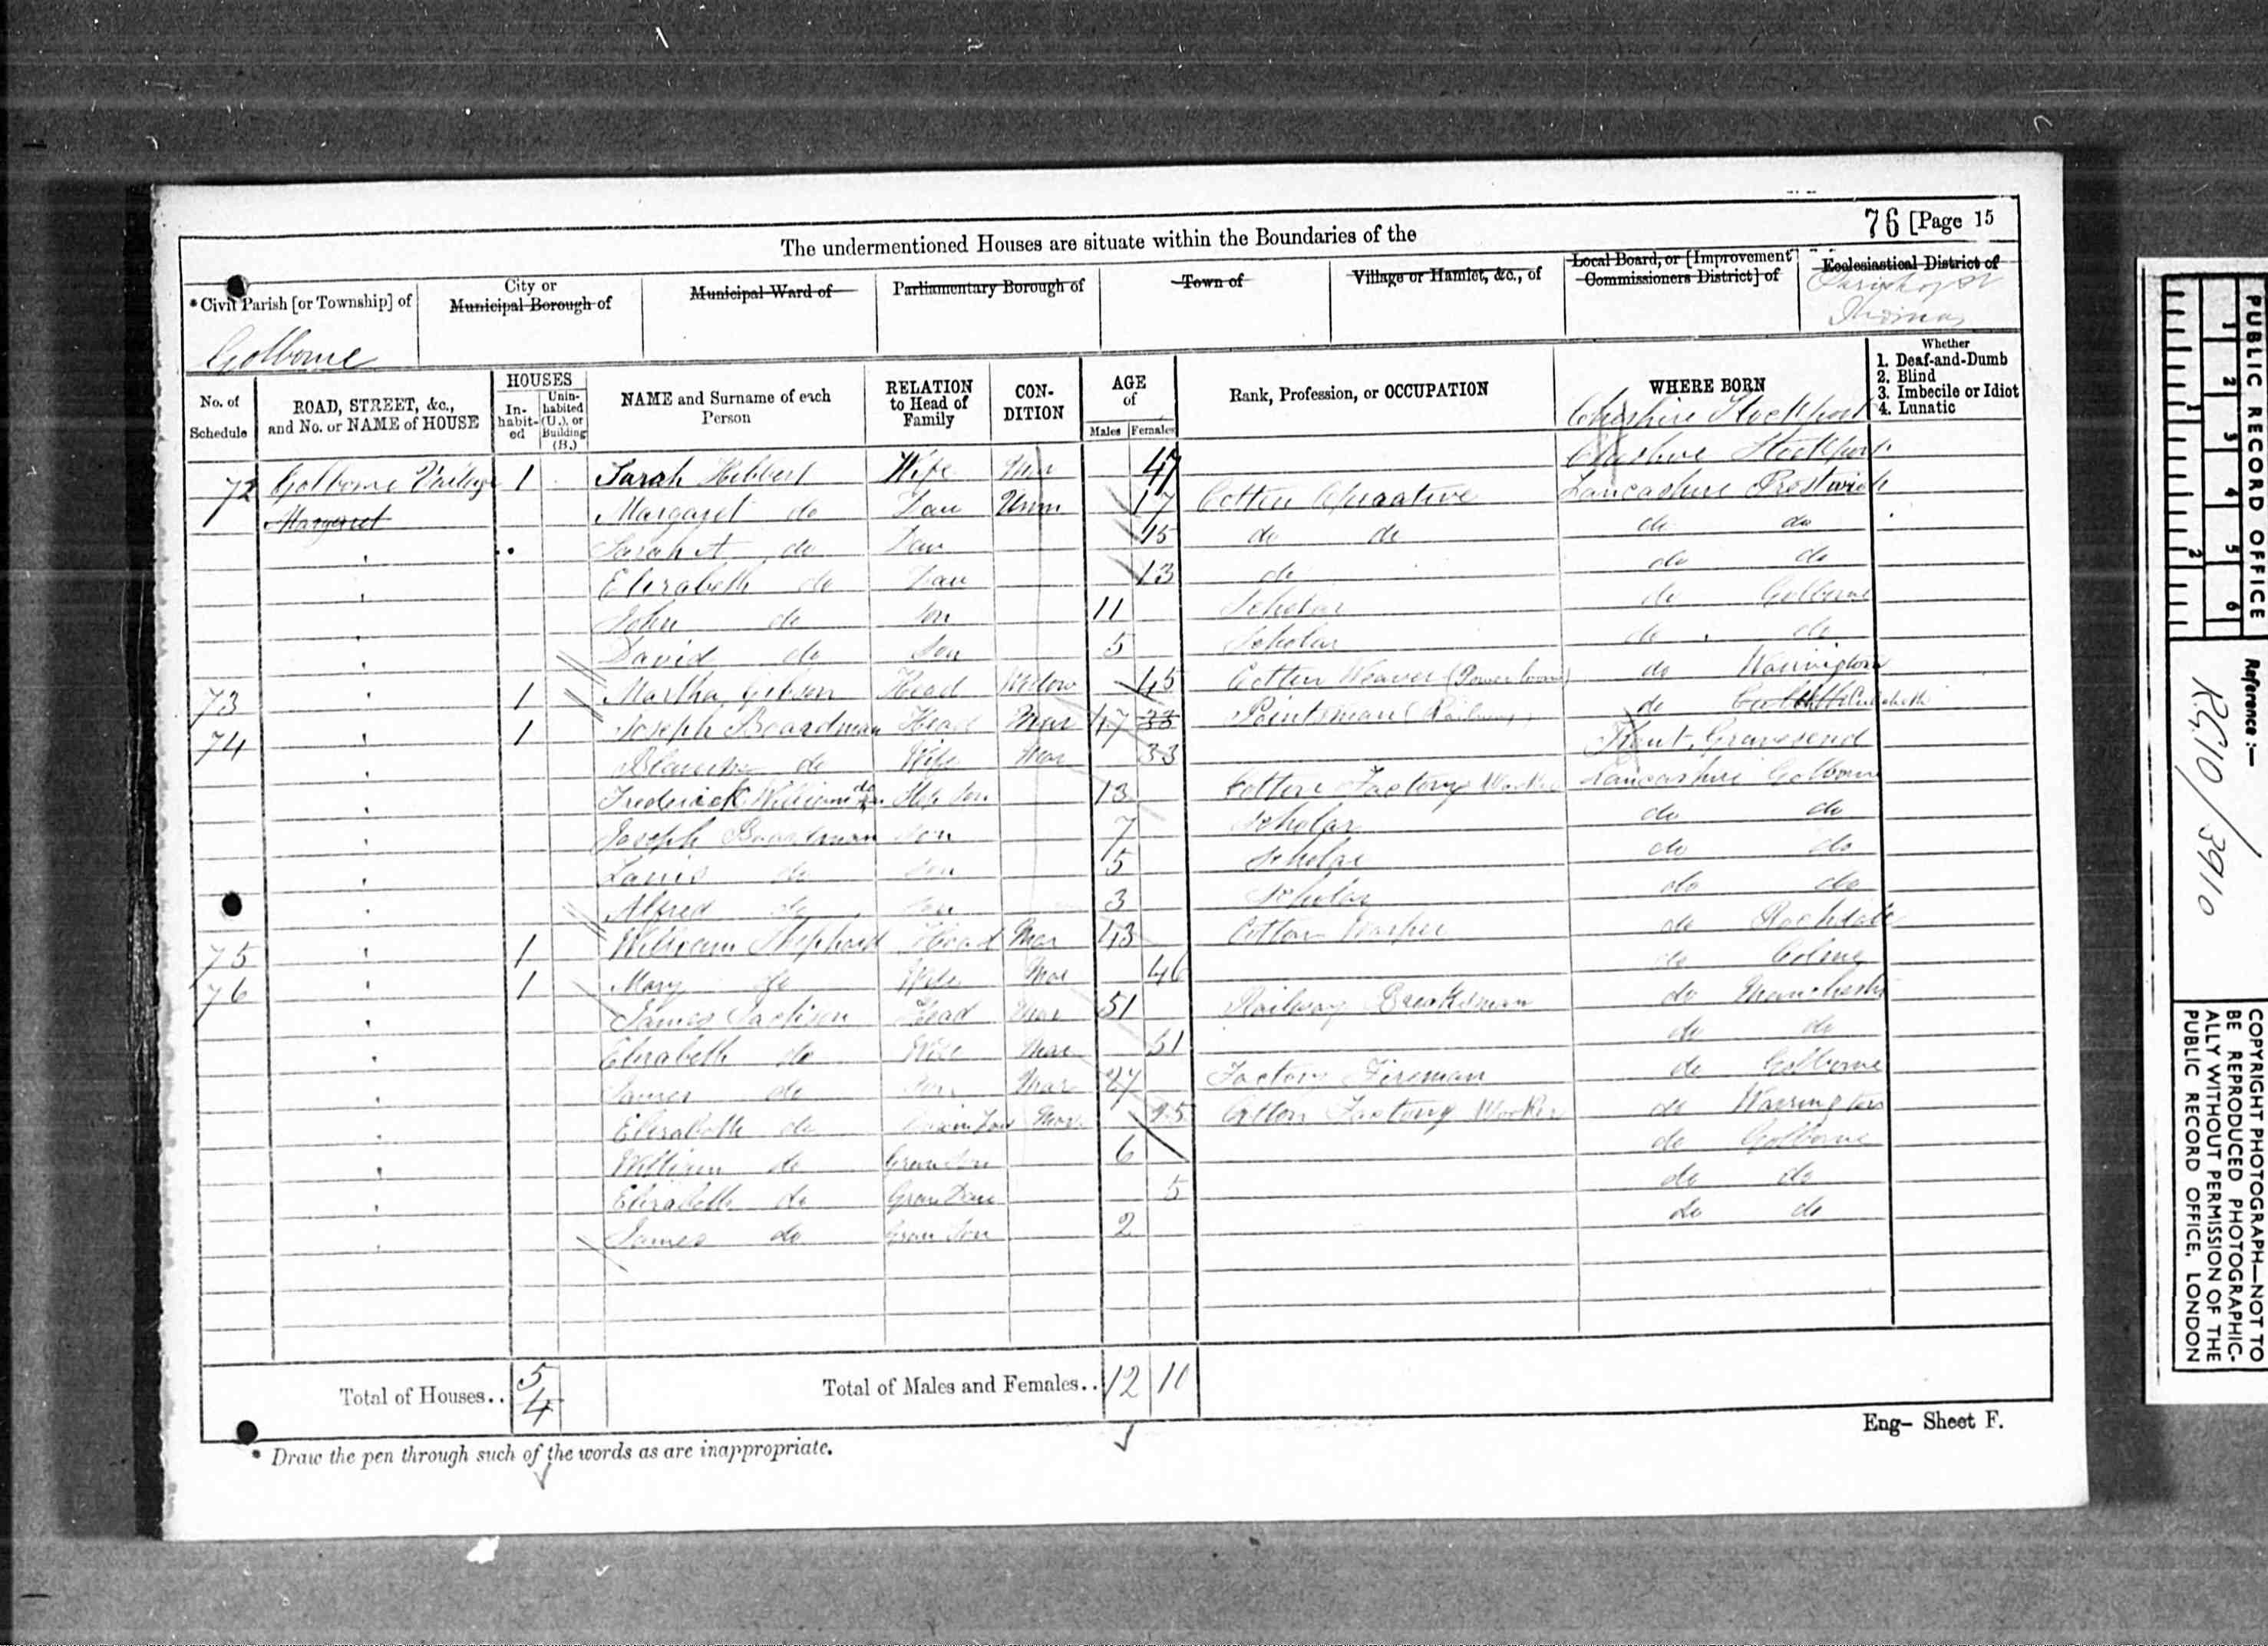 76 [Page 15
The undermentioned Houses are situate within the Boundaries of the
* Civil Parish [or Township] of City or Municipal Borough of Municipal Ward of Parliamentary Borough of Town of Village or Hamlet, &c., of Local Board, or [Improvement Commissioners District] of Ecclesiastical District of
Golborne Parish of St Thomas
No. of Schedule ROAD, STREET, &c., and No. or NAME of HOUSE HOUSES In-habit-ed Unin-habited (U.), or Building (B.) NAME and Surname of each Person RELATION to Head of Family CON-DITION AGE of Males Females Rank, Profession, or OCCUPATION WHERE BORN Whether 1. Deaf-and-Dumb 2. Blind 3. Imbecile or Idiot 4. Lunatic
Cheshire Stockport
72 Golborne 1 Sarah Hibbert Wife Mar 47 Cheshire Stockport
Margaret Margaret do Dau Unm 17 Cotton Operative Lancashire Prestwich
Sarah A do Dau 15 do do do do
Elizabeth do Dau 13 do do do
John do Son 11 Scholar do Golborne
David do Son 5 Scholar do do
73 1 Martha Gibson Head Widow 45 Cotton Weaver (Power loom) do Warrington
74 1 Joseph Boardman Head Mar 47 33 Pointsman (Railway) do
do Wife Mar 33 Kent, Gravesend
Frederick William do Step Son 13 Cotton Factory Worker Lancashire Golborne
Joseph Boardman Son 7 Scholar do do
Louis do Son 5 Scholar do do
Alfred do Son 3 Scholar do do
75 1 William Sheppard Head Mar 43 Cotton Warper do Rochdale
76 1 Mary do Wife Mar 46 do Colne
James Jackson Head Mar 51 Railway Breaksman do Manchester
Elizabeth do Wife Mar 51 do do
James do Son Mar 27 Factory Fireman do Golborne
Elizabeth do Mar 25 Cotton Factory Worker do Warrington
William do Gran Son 6 do Golborne
Elizabeth do Gran Dau 5 do do
James do Gran Son 2 do do
Total of Houses.. 5 4 Total of Males and Females.. 12
Eng- Sheet F.
* Draw the pen through such of the words as are inappropriate.
PUBLIC RECORD OFFICE
1 2 3 4 5 6
1 2
Reference :-
R.G.10/3910
COPYRIGHT PHOTOGRAPH—NOT TO
BE REPRODUCED PHOTOGRAPHIC-
ALLY WITHOUT PERMISSION OF THE
PUBLIC RECORD OFFICE, LONDON